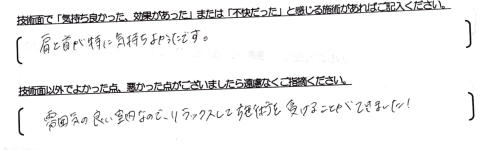 技術面で「気持ち良かった、効果があった」または「不快だった」と感じる施術があればご記入ください。
肩と首が特に気持ちよかったです。
技術面以外でよかった点、悪かった点がございましたら遠慮なくご指摘ください。
雰囲気の良い室内なので、リラックスして施術を受けることができました!